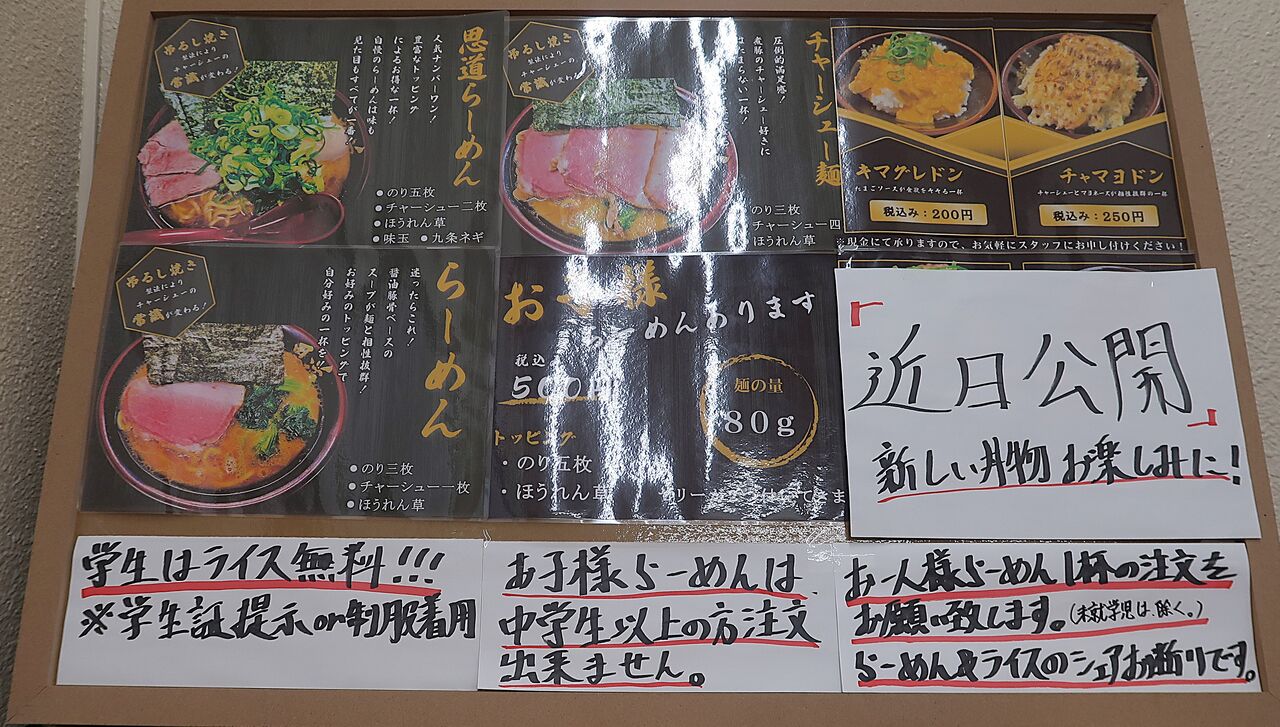 吊るし焼き
製法により
チャーシューの
常識が変わる！
思道らーめん
人気ナンバーワン！
豊富なトッピング
によるお得な一杯！
自慢のらーめんは味も
見た目もすべてが一番！
●のり五枚
●チャーシュー二枚
●ほうれん草
●味玉 ●九条ネギ
吊るし焼き
製法により
チャーシューの
常識が変わる！
チャーシュー麺
圧倒的満足感！
煮豚のチャーシュー好きに
はたまらない一杯！
のり三枚
チャーシュー四
ほうれん草
キマグレドン
たまごソースが食欲をそそる一杯
税込み：200円
チャマヨドン
チャーシューとマヨネーズが相性抜群の一杯
税込み：250円
※現金にて承りますので、お気軽にスタッフにお申し付けください！
吊るし焼き
製法により
チャーシューの
常識が変わる！
らーめん
迷ったらこれ！
醤油豚骨ベースの
スープが麺と相性抜群！
お好みのトッピングで
自分好みの一杯を
●のり三枚
●チャーシュー一枚
●ほうれん草
お子様
らーめんあります
税込
500円
麺の量
80g
トッピング
・のり五枚
・ほうれん草
「近日公開」
新しい丼物お楽しみに！
学生はライス無料!!!
※学生証提示or制服着用
お子様らーめんは
中学生以上の方注文
出来ません。
お一人様らーめん1杯の注文を
お願い致します。(未就学児は除く。)
らーめんやライスのシェアお断りです。